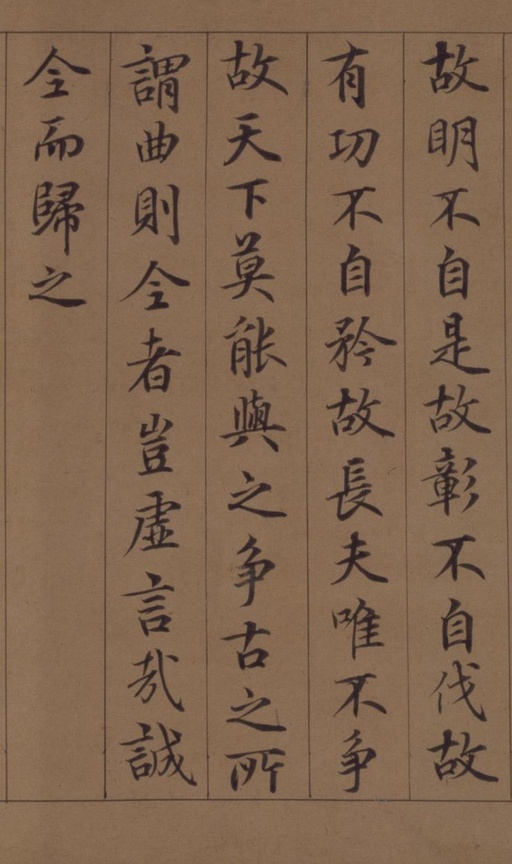 故明不自是故彰不自伐故
有功不自矜故長夫唯不争
故天下莫能與之争古之所
謂曲則全者豈虛言哉誠
全而歸之